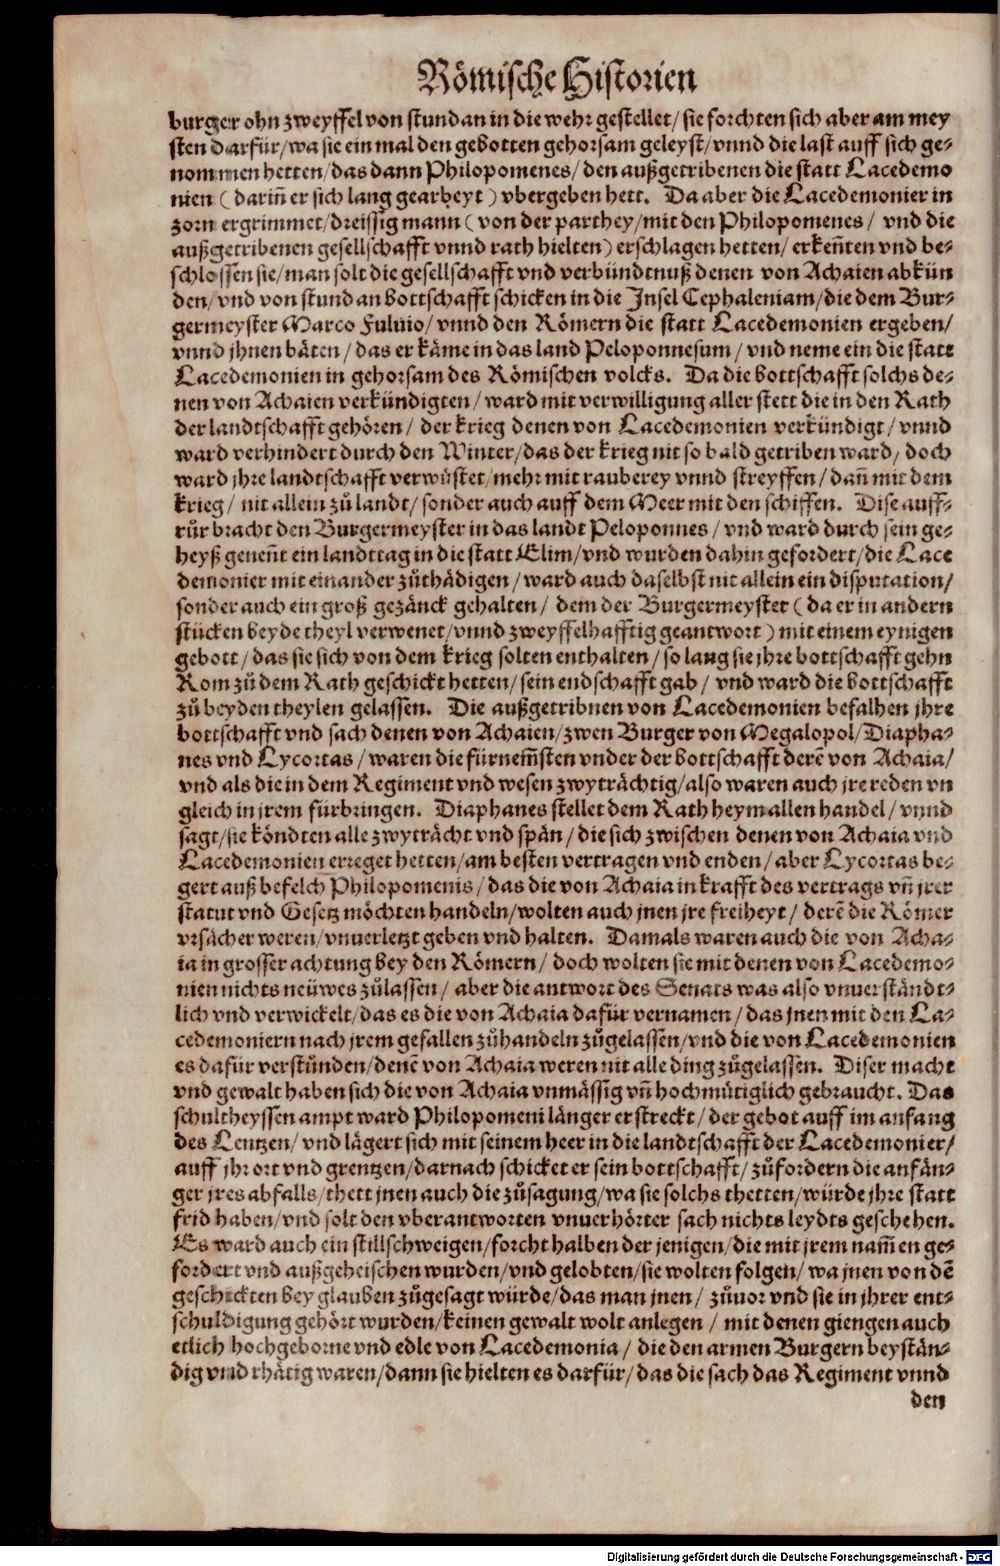 Römische Historien
burger ohn zweyffel von stundan in die wehr gestellet/ sie forchten sich aber am mey
sten darfür/wa sie ein mal den gebotten gehorsam geleyst/vnnd die last auff sich ge-
nommen hetten/das dann Philopomenes/ den außgetribenen die statt Lacedemo
nien ( dariñ er sich lang gearbeyt ) vbergeben hett. Da aber die Lacedemonier in
zorn ergrimmet/dreissig mann ( von der parthey/mit den Philopomenes / vnd die
außgetribenen gesellschafft vnnd rath hielten) erschlagen hetten/ erkeñten vnd be-
schlossen sie/man solt die gesellschafft vnd verbündtnuß denen von Achaien abkün
den/vnd von stund an bottschafft schicken in die Insel Cephaleniam/die dem Bur-
germeyster Marco Fuluio/ vnnd den Römern die statt Lacedemonien ergeben/
vnnd jhnen bäten/das er käme in das land Peloponnesum / vnd neme ein die statt
Lacedemonien in gehorsam des Römischen volcks. Da die bottschafft solchs de-
nen von Achaien verkündigten/ ward mit verwilligung aller stett die in den Rath
der landtschafft gehören/ der krieg denen von Lacedemonien verkündigt/ vnnd
ward verhindert durch den Winter/das der krieg nit so bald getriben ward/ doch
ward jhre landtschafft verwüstet/mehr mit rauberey vnnd streyffen/ dañ mit dem
krieg/ nit allein zů landt/ sonder auch auff dem Meer mit den schiffen. Dise auff-
růr bracht den Burgermeyster in das landt Peloponnes/ vnd ward durch sein ge-
heyß geneñt ein landttag in die statt Elim/vnd wurden dahin gefordert/die Lace
demonier mit einander zůthädigen/ward auch daselbst nit allein ein disputation/
sonder auch ein groß gezänck gehalten/ dem der Burgermeyster ( da er in andern
stücken beyde theyl verwenet/vnnd zweyffelhafftig geantwort ) mit einem eynigen
gebott/das sie sich von dem krieg solten enthalten/so lang sie jhre bottschafft gehn
Rom zů dem Rath geschickt hetten/ sein endschafft gab/ vnd ward die bottschafft
zů beyden theylen gelassen. Die außgetribnen von Lacedemonien befalhen jhre
bottschafft vnd sach denen von Achaien/zwen Burger von Megalopol/Diapha-
nes vnd Lycortas/ waren die fürnem̃sten vnder der bottschafft derẽ von Achaia/
vnd als die in dem Regiment vnd wesen zwyträchtig/also waren auch jre reden vn
gleich in jrem fürbringen. Diaphanes stellet dem Rath heym allen handel/ vnnd
sagt/sie köndten alle zwyträcht vnd spän/ die sich zwischen denen von Achaia vnd
Lacedemonien erreget hetten/am besten vertragen vnd enden/ aber Lycortas be-
gert auß befelch Philopomenis/das die von Achaia in krafft des vertrags vñ jrer
statut vnd Gesetz möchten handeln/wolten auch jnen jre freiheyt/ derẽ die Römer
vrsächer weren/vnuerletzt geben vnd halten. Damals waren auch die von Acha-
ia in grosser achtung bey den Römern/ doch wolten sie mit denen von Lacedemo-
nien nichts neüwes zůlassen/ aber die antwort des Senats was also vnuerständt-
lich vnd verwickelt/das es die von Achaia dafür vernamen/das jnen mit den La-
cedemoniern nach jrem gefallen zůhandeln zůgelassen/vnd die von Lacedemonien
es dafür verstünden/denẽ von Achaia weren nit alle ding zůgelassen. Diser macht
vnd gewalt haben sich die von Achaia vnmässig vñ hochmütiglich gebraucht. Das
schultheyssen ampt ward Philopomeni länger erstreckt/der gebot auff im anfang
des Lentzen/ vnd lägert sich mit seinem heer in die landtschafft der Lacedemonier/
auff jhr ort vnd grentzen/darnach schicket er sein bottschafft/ zůfordern die anfän-
ger jres abfalls/thett jnen auch die zůsagung/wa sie solchs thetten/würde jhre statt
frid haben/vnd solt den vberantworten vnuerhörter sach nichts leydts geschehen.
Es ward auch ein stillschweigen/forcht halben der jenigen/die mit jrem nam̃en ge-
fordert vnd außgeheischen wurden/vnd gelobten/sie wolten folgen/ wa jnen von dẽ
geschickten bey glauben zůgesagt würde/das man jnen/ zůuor vnd sie in jhrer ent-
schuldigung gehört wurden/keinen gewalt wolt anlegen / mit denen giengen auch
etlich hochgeborne vnd edle von Lacedemonia/ die den armen Burgern beystän-
dig vnd rhätig waren/dann sie hielten es darfür/das die sach das Regiment vnnd
den
Digitalisierung gefördert durch die Deutsche Forschungsgemeinschaft - DFG